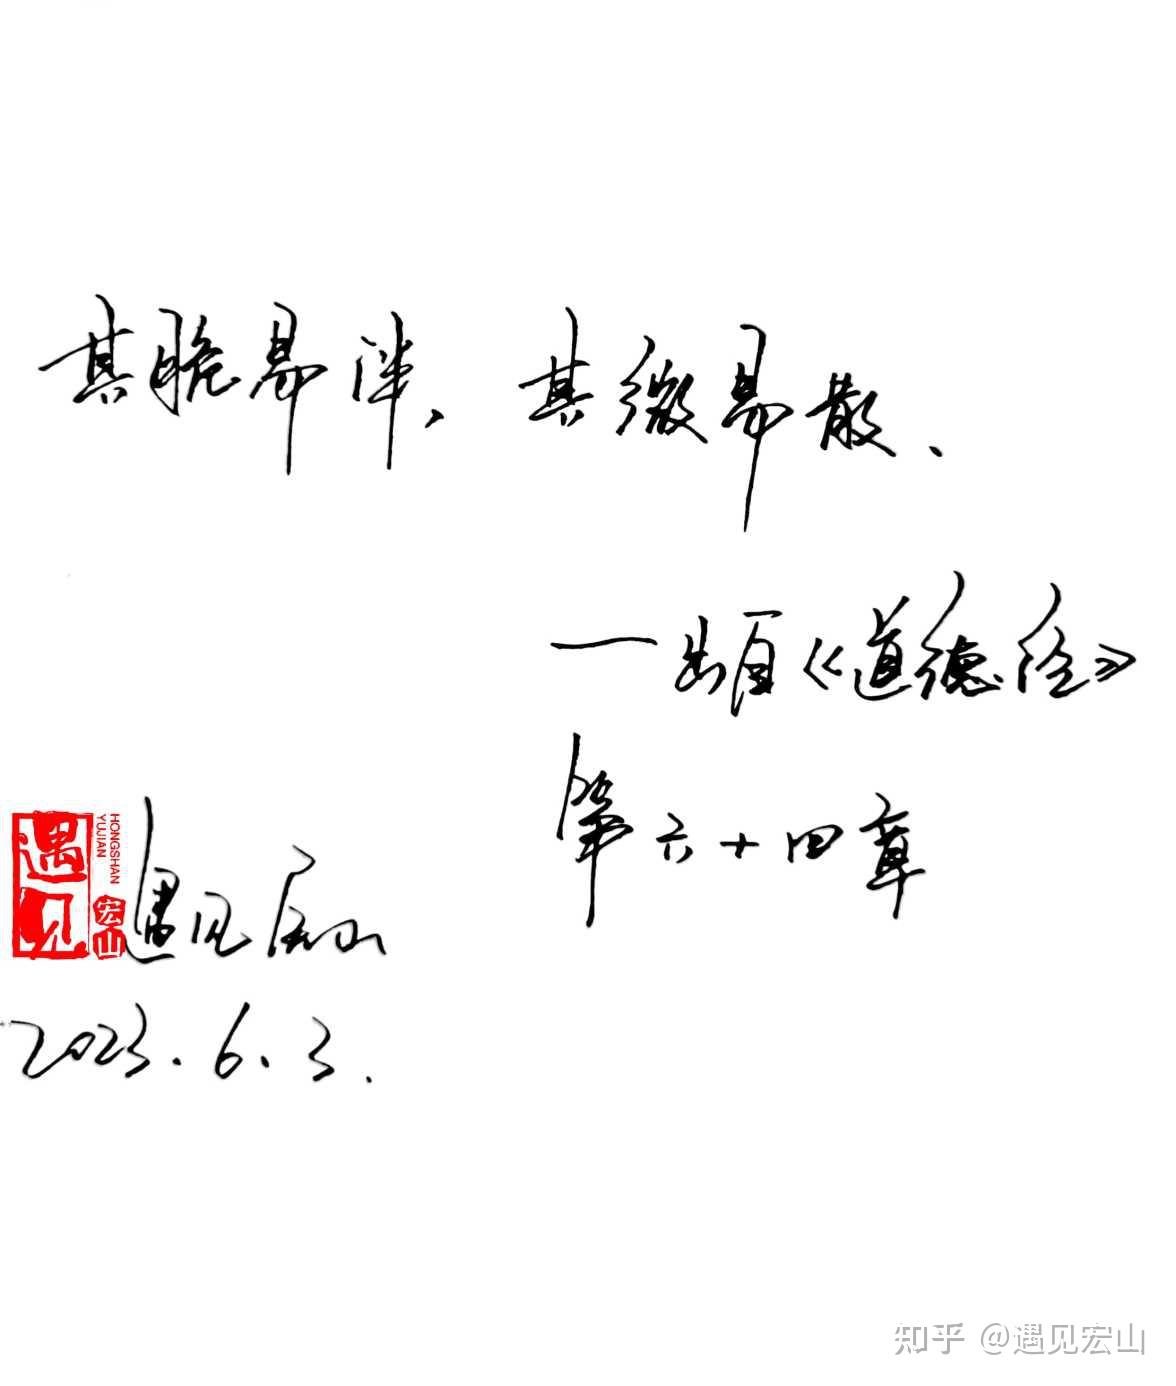 其脆易泮、其微易散.
一出自《道德经》
第六十四章
遇见
HONGSHAN
YUJIAN
宏山
遇见宏山
2023.6.3.
知乎 @遇见宏山